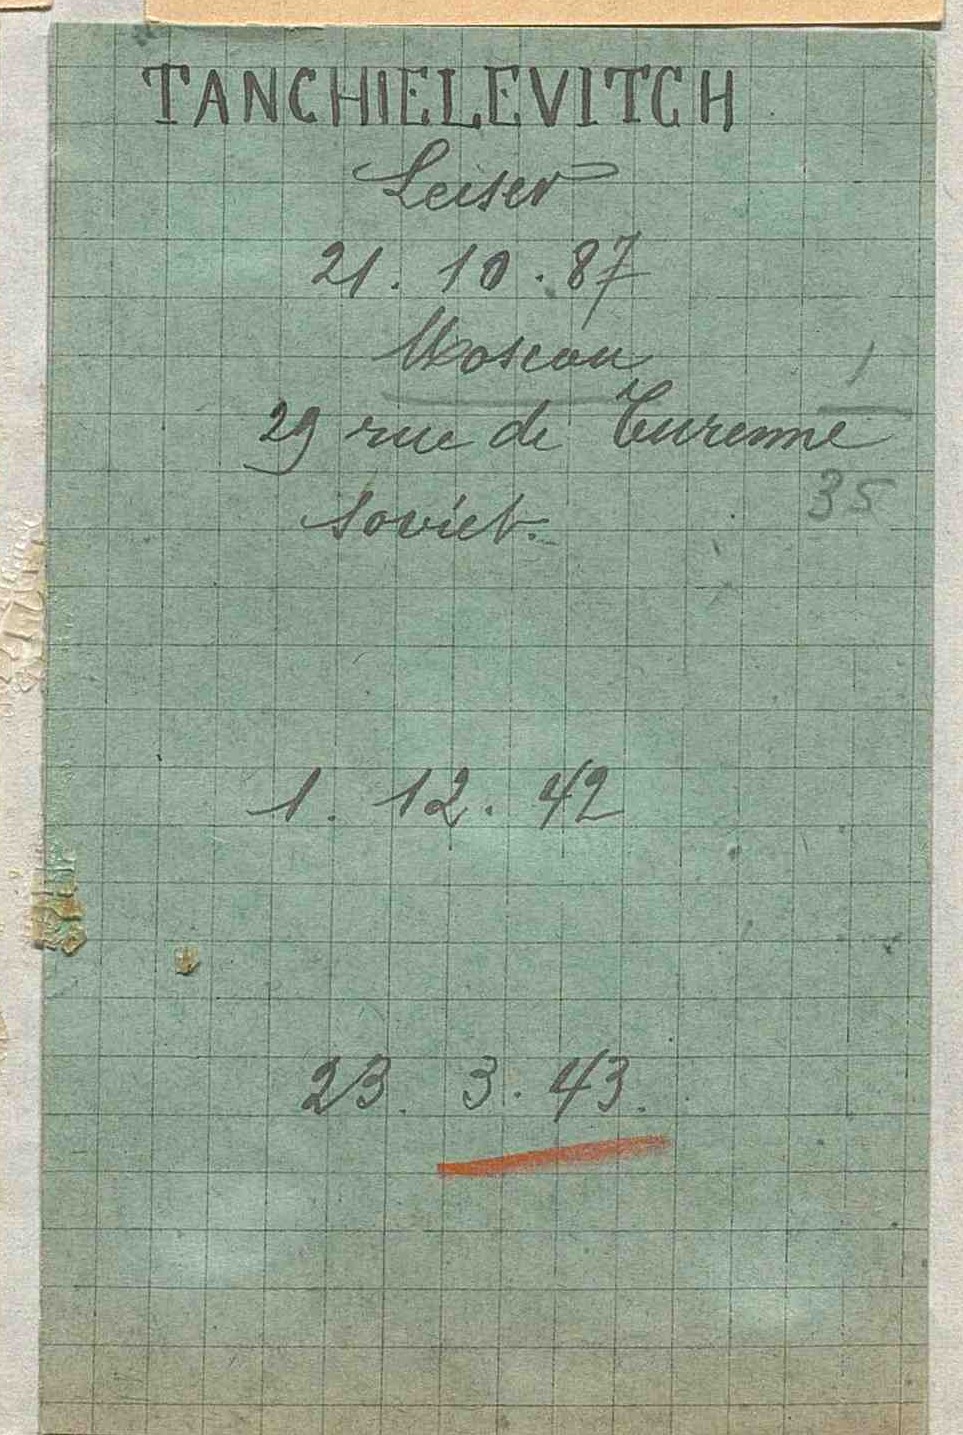 TANCHIELEVITCH
Leiser
21. 10. 87
Moscou
29 rue de Turenne
1
35
Soviet.
1. 12. 42
23. 3. 43.